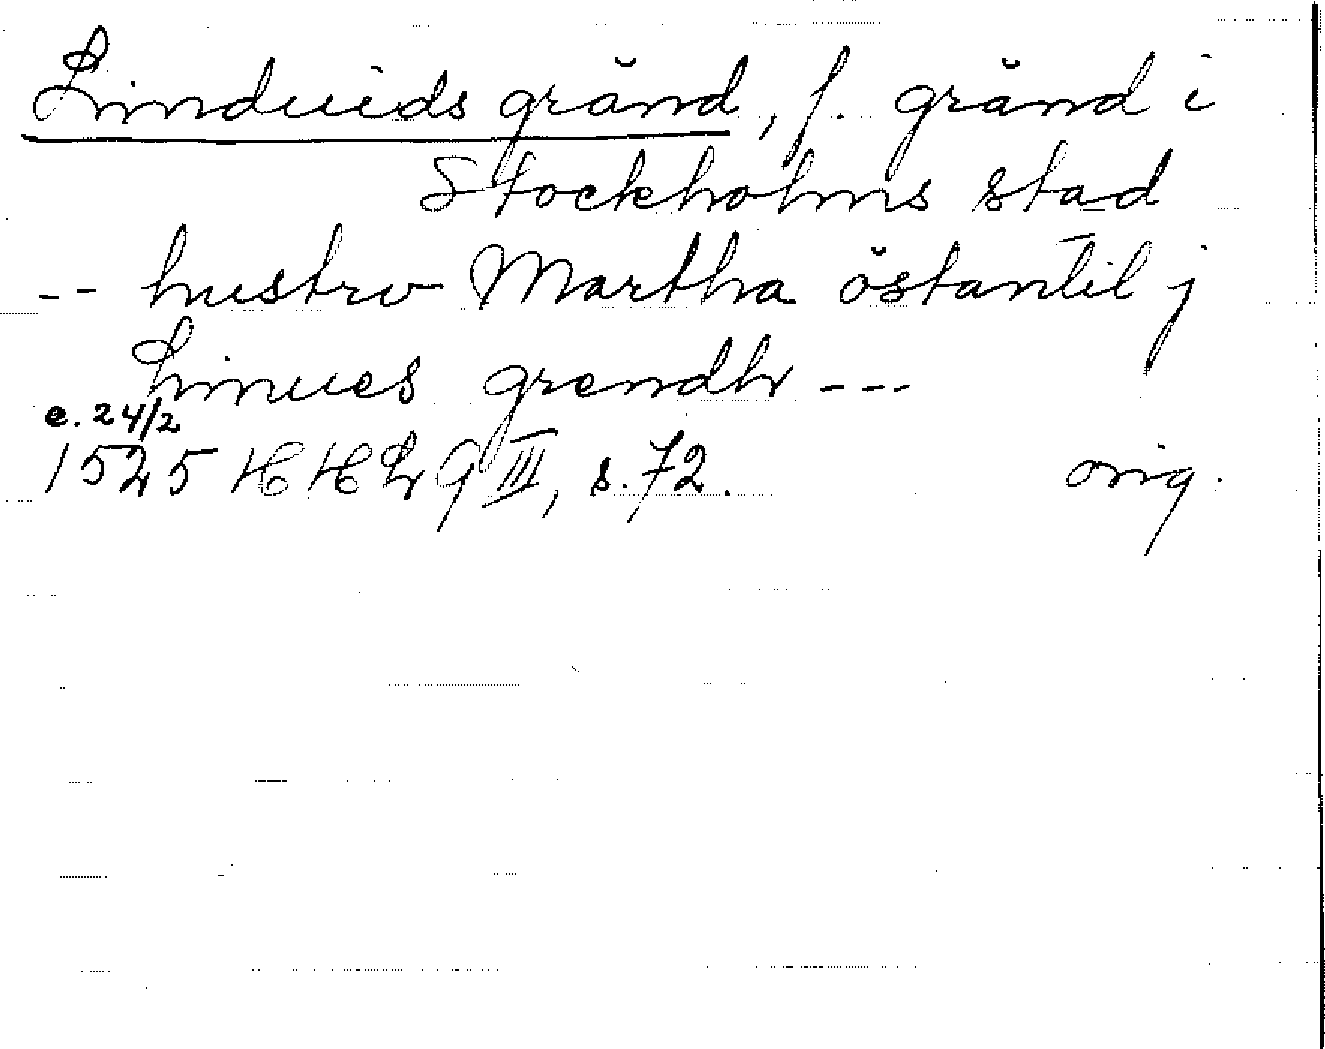 Lindvids gränd, f. gränd i
Stockholms stad
-- hustrv Martha östantil j
Linues grendh ---
e. 24/2
1525 HHLg III, s. 72. orig.